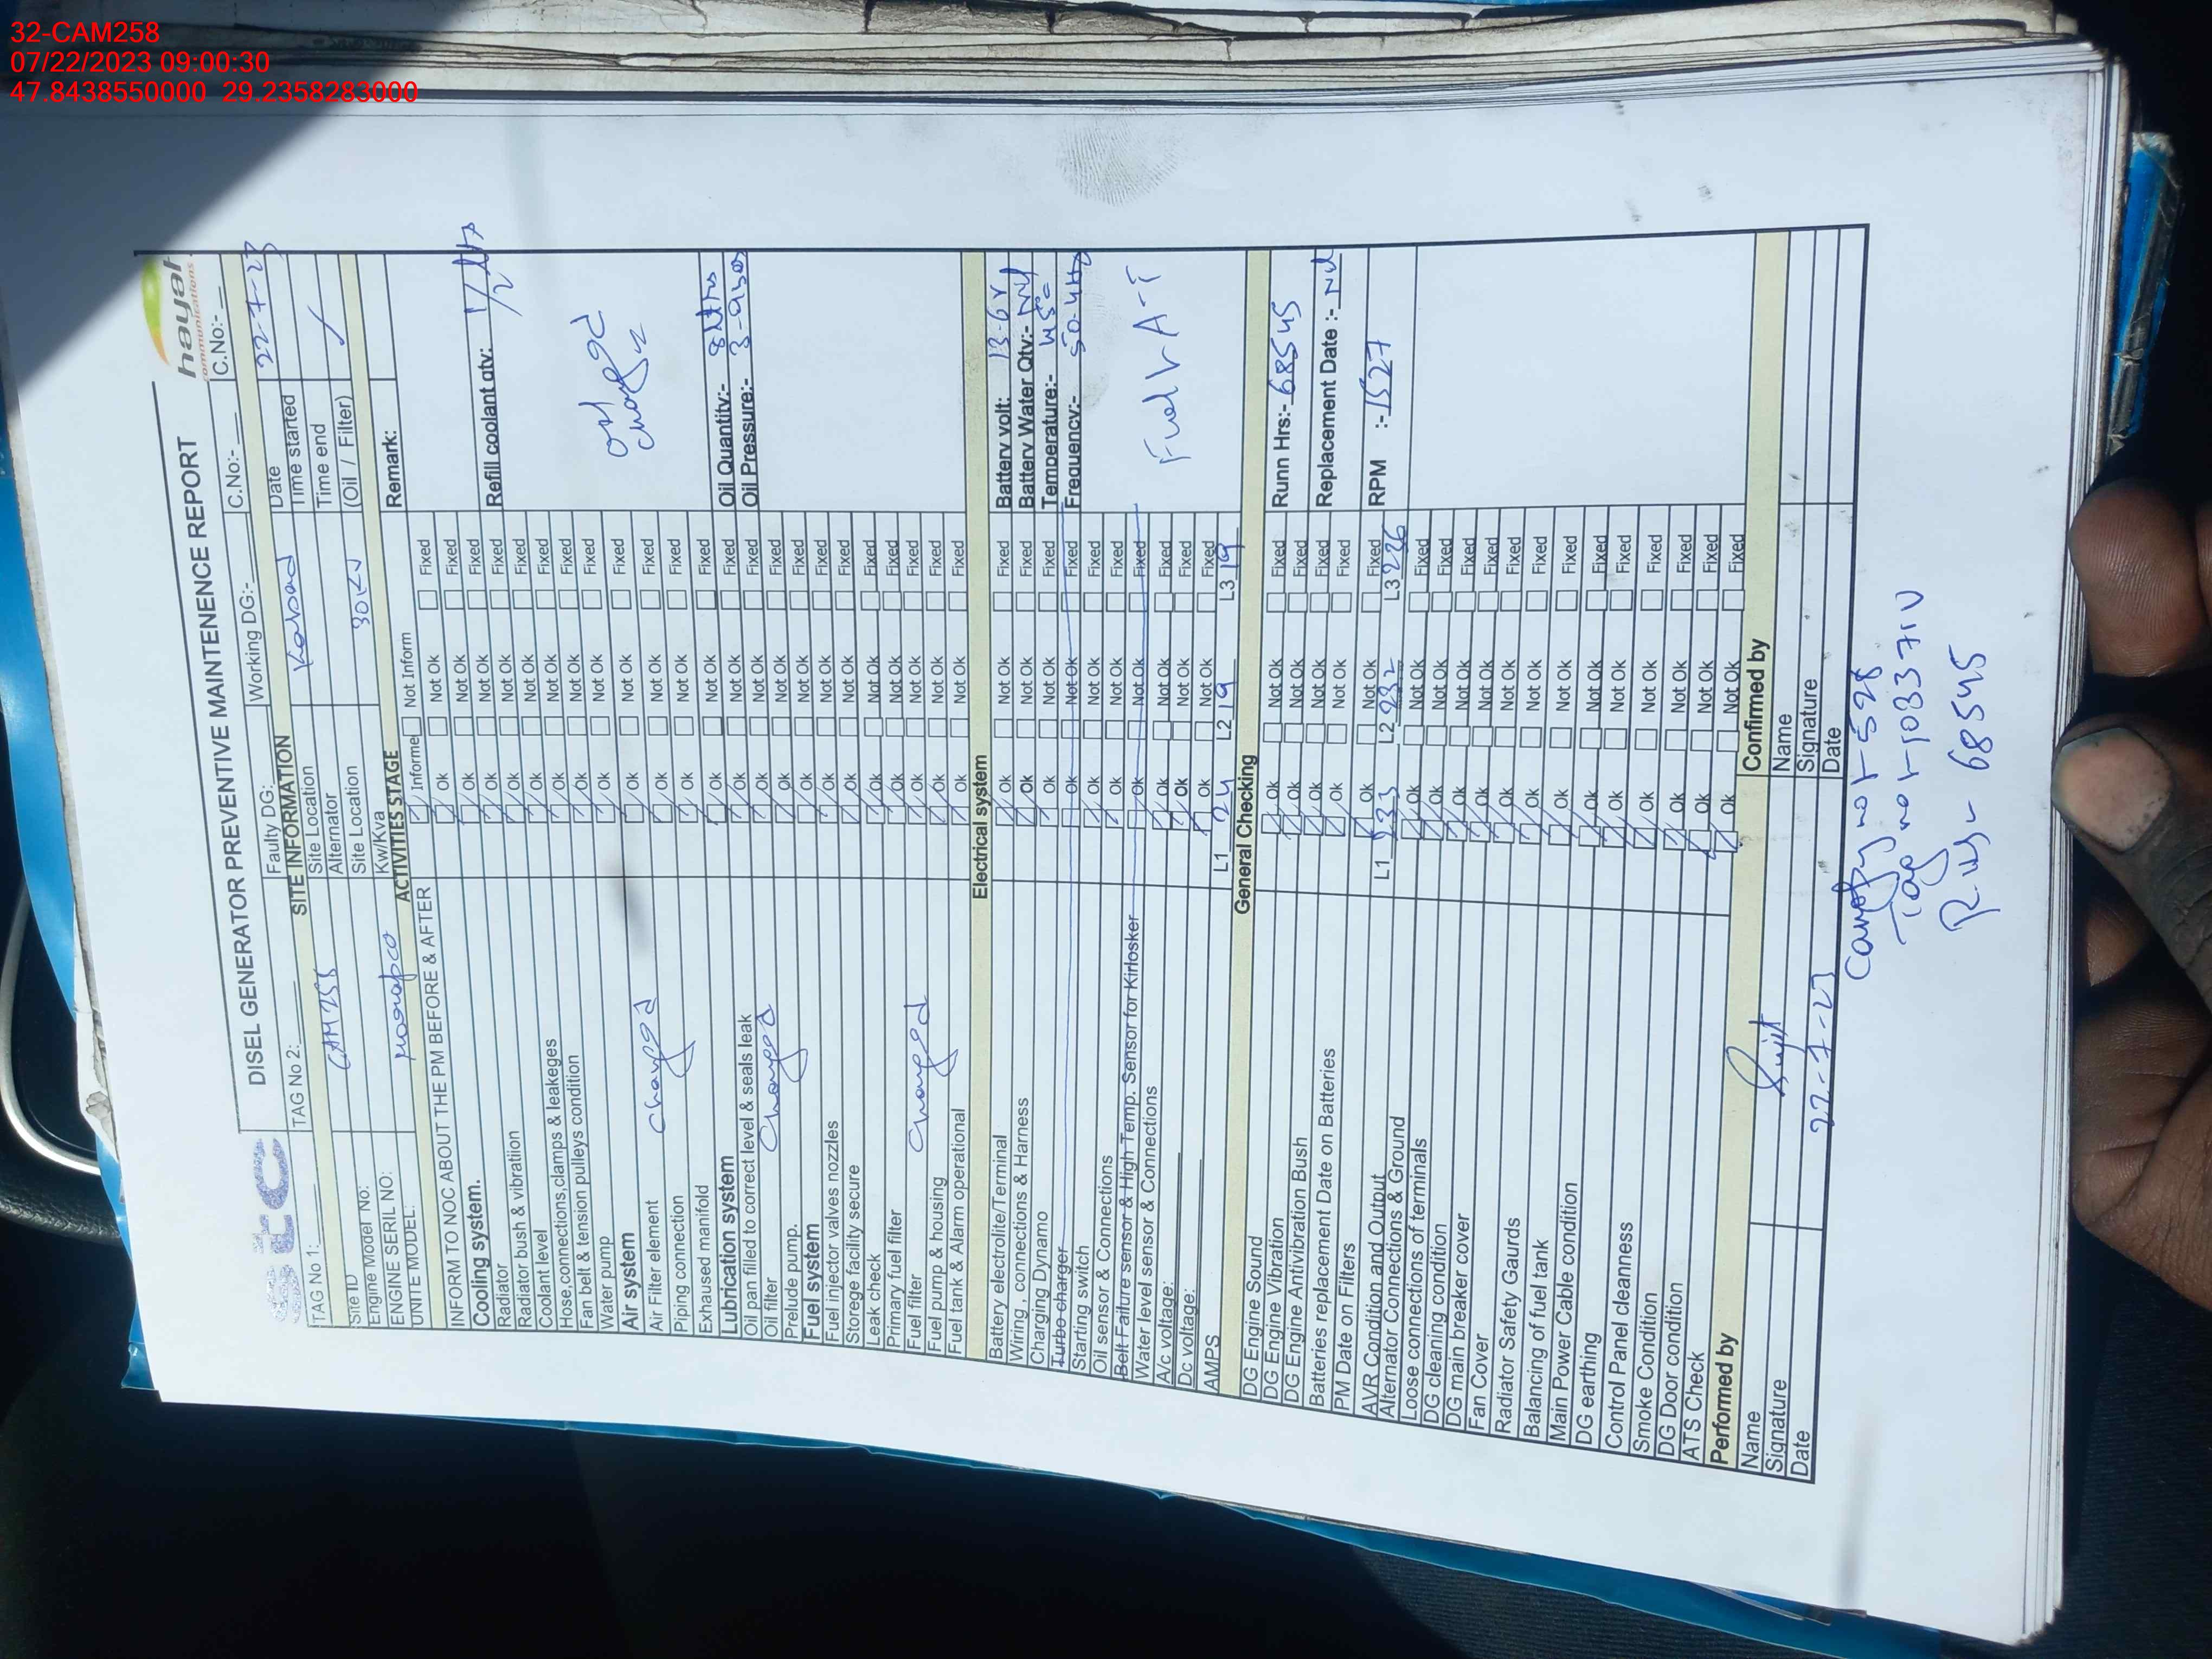 32-CAM258
07/22/2023 09:00:30
47.8438550000 29.2358283000
stc
DISEL GENERATOR PREVENTIVE MAINTENENCE REPORT
hayat
communications
TAG No 1:
TAG No 2:
Faulty DG:
Working DG:-
C.No:-
C.No:-
SITE INFORMATION
Site ID
Site Location
Kabad
Date 22-7-23
Engine Model No:
Alternator
Time started
ENGINE SERIL NO:
Site Location
Time end
UNITE MODEL:
Kw/Kva
(Oil / Filter)
ACTIVITIES STAGE
Remark:
INFORM TO NOC ABOUT THE PM BEFORE & AFTER Informe Not Inform Fixed
Cooling system. Ok Not Ok Fixed
Radiator Ok Not Ok Fixed
Refill coolant qty: 1/2 ltrs
Radiator bush & vibratiion Ok Not Ok Fixed
Coolant level Ok Not Ok Fixed
Hose,connections,clamps & leakeges Ok Not Ok Fixed
Fan belt & tension pulleys condition Ok Not Ok Fixed
Water pump Ok Not Ok Fixed
Air system Ok Not Ok Fixed
Air Filter element changed Ok Not Ok Fixed
Piping connection Ok Not Ok Fixed
Exhaused manifold Ok Not Ok Fixed
Lubrication system Ok Not Ok Fixed
Oil Quantity:- 8 ltrs
Oil pan filled to correct level & seals leak Ok Not Ok Fixed
Oil Pressure:-
Oil filter changed Ok Not Ok Fixed
Prelude pump. Ok Not Ok Fixed
Fuel system Ok Not Ok Fixed
Fuel injector valves nozzles Ok Not Ok Fixed
Storege facility secure Ok Not Ok Fixed
Leak check Ok Not Ok Fixed
Primary fuel filter Ok Not Ok Fixed
Fuel filter changed Ok Not Ok Fixed
Fuel pump & housing Ok Not Ok Fixed
Fuel tank & Alarm operational Ok Not Ok Fixed
Electrical system
Battery electrolite/Terminal Ok Not Ok Fixed Battery volt: 13-6V
Wiring , connections & Harness Ok Not Ok Fixed Battery Water Qty:- Nil
Charging Dynamo Ok Not Ok Fixed Temperature:-
Turbo charger Ok Not Ok Fixed Frequency:- 50-4Hz
Starting switch Ok Not Ok Fixed
Oil sensor & Connections Ok Not Ok Fixed
Belt Failure sensor & High Temp. Sensor for Kirlosker Ok Not Ok Fixed
Water level sensor & Connections Ok Not Ok Fixed
A/c voltage: Ok Not Ok Fixed
Dc voltage: Ok Not Ok Fixed
AMPS L1 24 L2 19 L3 19
General Checking
DG Engine Sound Ok Not Ok Fixed
Runn Hrs:- 68545
DG Engine Vibration Ok Not Ok Fixed
DG Engine Antivibration Bush Ok Not Ok Fixed
Batteries replacement Date on Batteries Ok Not Ok Fixed
Replacement Date :- Nil
PM Date on Filters Ok Not Ok Fixed
RPM :- 1527
AVR Condition and Output L1 233 L2 232 L3 236
Alternator Connections & Ground Ok Not Ok Fixed
Loose connections of terminals Ok Not Ok Fixed
DG cleaning condition Ok Not Ok Fixed
DG main breaker cover Ok Not Ok Fixed
Fan Cover Ok Not Ok Fixed
Radiator Safety Gaurds Ok Not Ok Fixed
Balancing of fuel tank Ok Not Ok Fixed
Main Power Cable condition Ok Not Ok Fixed
DG earthing Ok Not Ok Fixed
Control Panel cleanness Ok Not Ok Fixed
Smoke Condition Ok Not Ok Fixed
DG Door condition Ok Not Ok Fixed
ATS Check Ok Not Ok Fixed
Performed by
Confirmed by
Name
Name
Signature
Signature
Date 22-7-23
Date
68545